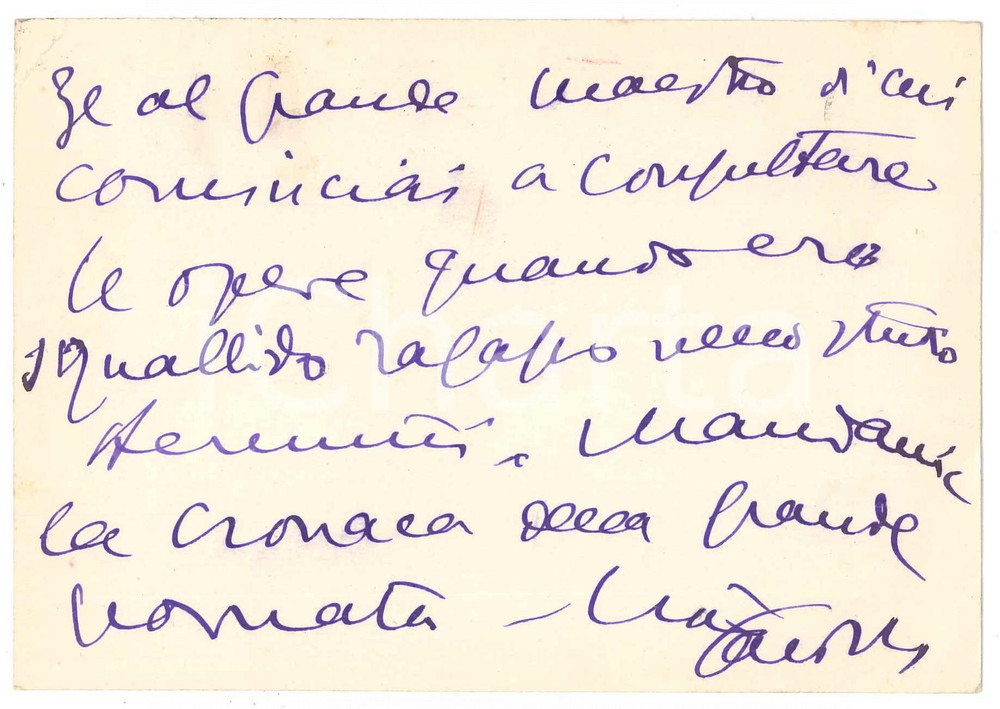 ge al grande maestro di cui
cominciai a consultare
le opere quando ero
squallido ragazzo nello studio
. Mandami
la cronaca della grande
giornata –